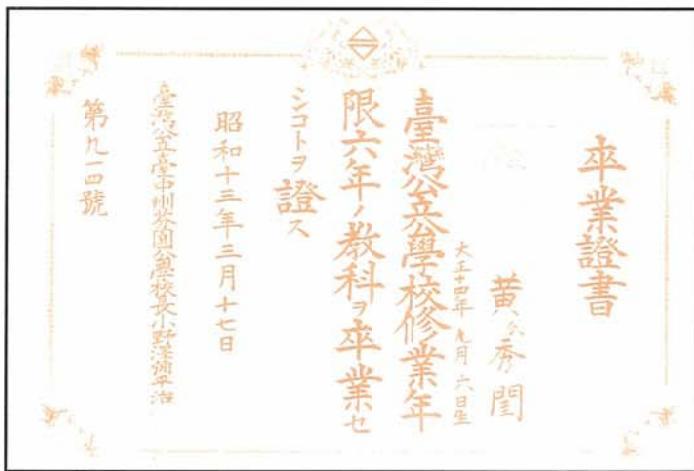 卒業證書
黄氏秀閨
大正十四年九月六日生
臺灣公立公學校修業年
限六年ノ教科ヲ卒業セ
シコトヲ證ス
昭和十三年三月十七日
臺灣公立臺中州芬園公學校長小野澤彌平治
第九一四號